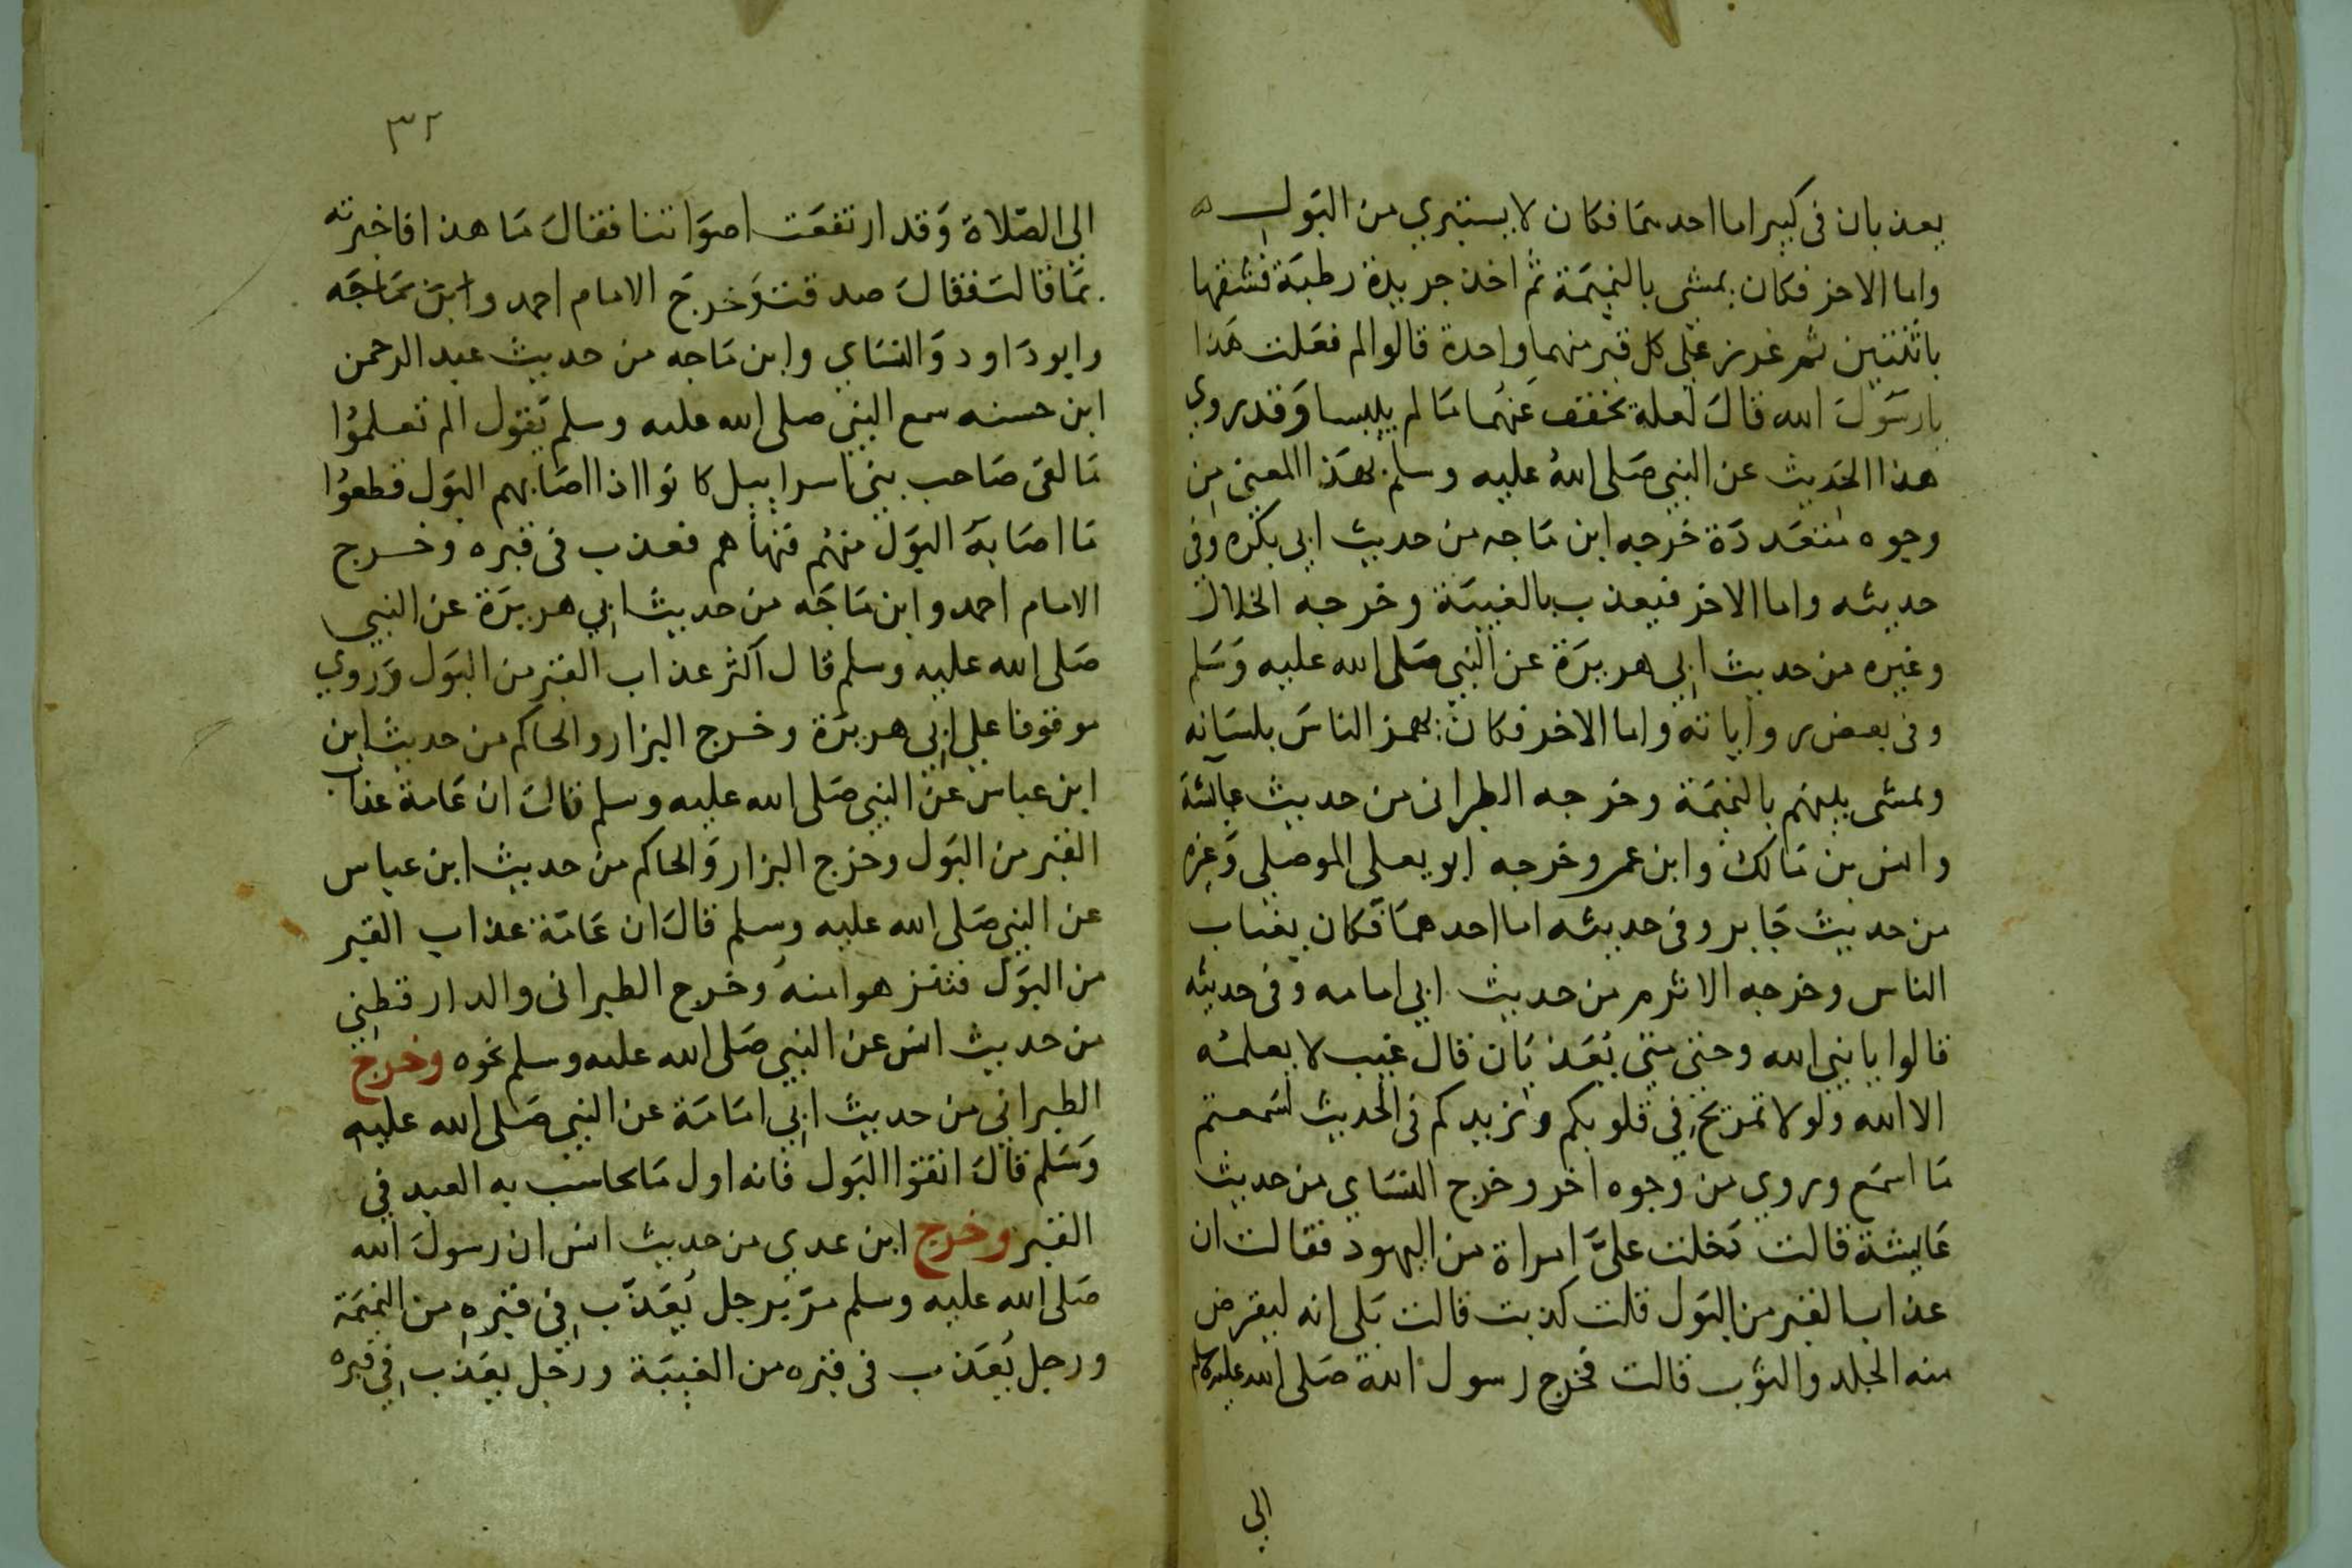 يعذبان فى كبير اما احدهما فكان لا يستبري من البول
واما الاخر فكان يمشى بالنميمة ثم اخذ جريدة رطبة فشقها
باثنتين ثم غرز على كل قبر منهما واحدة قالوا لم فعلت هذا
يارسول الله قال لعله يخفف عنهما ما لم ييبسا وقد روي
هذا الحديث عن النبي صلى الله عليه وسلم بهذا المعنى من
وجوه متعددة خرجه ابن ماجه من حديث ابي بكره وفى
حديثه واما الاخر فيعذب بالغيبة وخرجه الخلال
وغيره من حديث ابي هريرة عن النبي صلى الله عليه وسلم
وفى بعض رواياته واما الاخر فكان يهمز الناس بلسانه
ويمشى بينهم بالنميمة وخرجه الطبرانى من حديث عايشة
وانس بن مالك وابن عمر وخرجه ابو يعلى الموصلي وغيره
من حديث جابر وفى حديثه اما احدهما فكان يغتاب
الناس وخرجه الاثرم من حديث ابي امامه وفى حديثه
قالوا يا نبي الله وحتى متى يعذبان قال غيب لا يعلمه
الا الله ولولا تمريخ في قلوبكم وتزيدكم فى الحديث لسمعتم
ما اسمع وروي من وجوه اخر وخرج النساي من حديث
عايشة قالت دخلت علىّ امراة من اليهود فقالت ان
عذاب القبر من البول قلت كذبت قالت بلى انه ليقرض
منه الجلد والثوب قالت فخرج رسول الله صلى الله عليه وسلم
الي
٣٢
الي الصلاة وقد ارتفعت اصواتنا فقال ما هذا فاخبرته
بما قالت فقال صدقت وخرج الامام احمد وابن ماجه
وابو داود والنساي وابن ماجه من حديث عبد الرحمن
ابن حسنه سمع النبي صلى الله عليه وسلم يقول الم تعلموا
ما لقى صاحب بني اسراييل كانوا اذا اصابهم البول قطعوا
ما اصابه البول منهم فنهاهم فعذب فى قبره وخرج
الامام احمد وابن ماجه من حديث ابي هريرة عن النبي
صلى الله عليه وسلم قال اكثر عذاب القبر من البول وروي
موقوفا علي ابي هريرة وخرج البزار والحاكم من حديث ابن
ابن عباس عن النبي صلى الله عليه وسلم قال ان عامة عذاب
القبر من البول وخرج البزار والحاكم من حديث ابن عباس
عن النبي صلى الله عليه وسلم قال ان عامة عذاب القبر
من البول فتنزهوا منه وخرج الطبرانى والدارقطني
من حديث انس عن النبي صلى الله عليه وسلم نحوه وخرج
الطبراني من حديث ابي امامة عن النبي صلى الله عليه
وسلم قال اتقوا البول فانه اول ما يحاسب به العبد في
القبر وخرج ابن عدي من حديث انس ان رسول الله
صلى الله عليه وسلم مرّ برجل يُعَذّب في قبره من النميمة
ورجل يُعَذب فى قبره من الغيبة ورجل يعذب في قبره